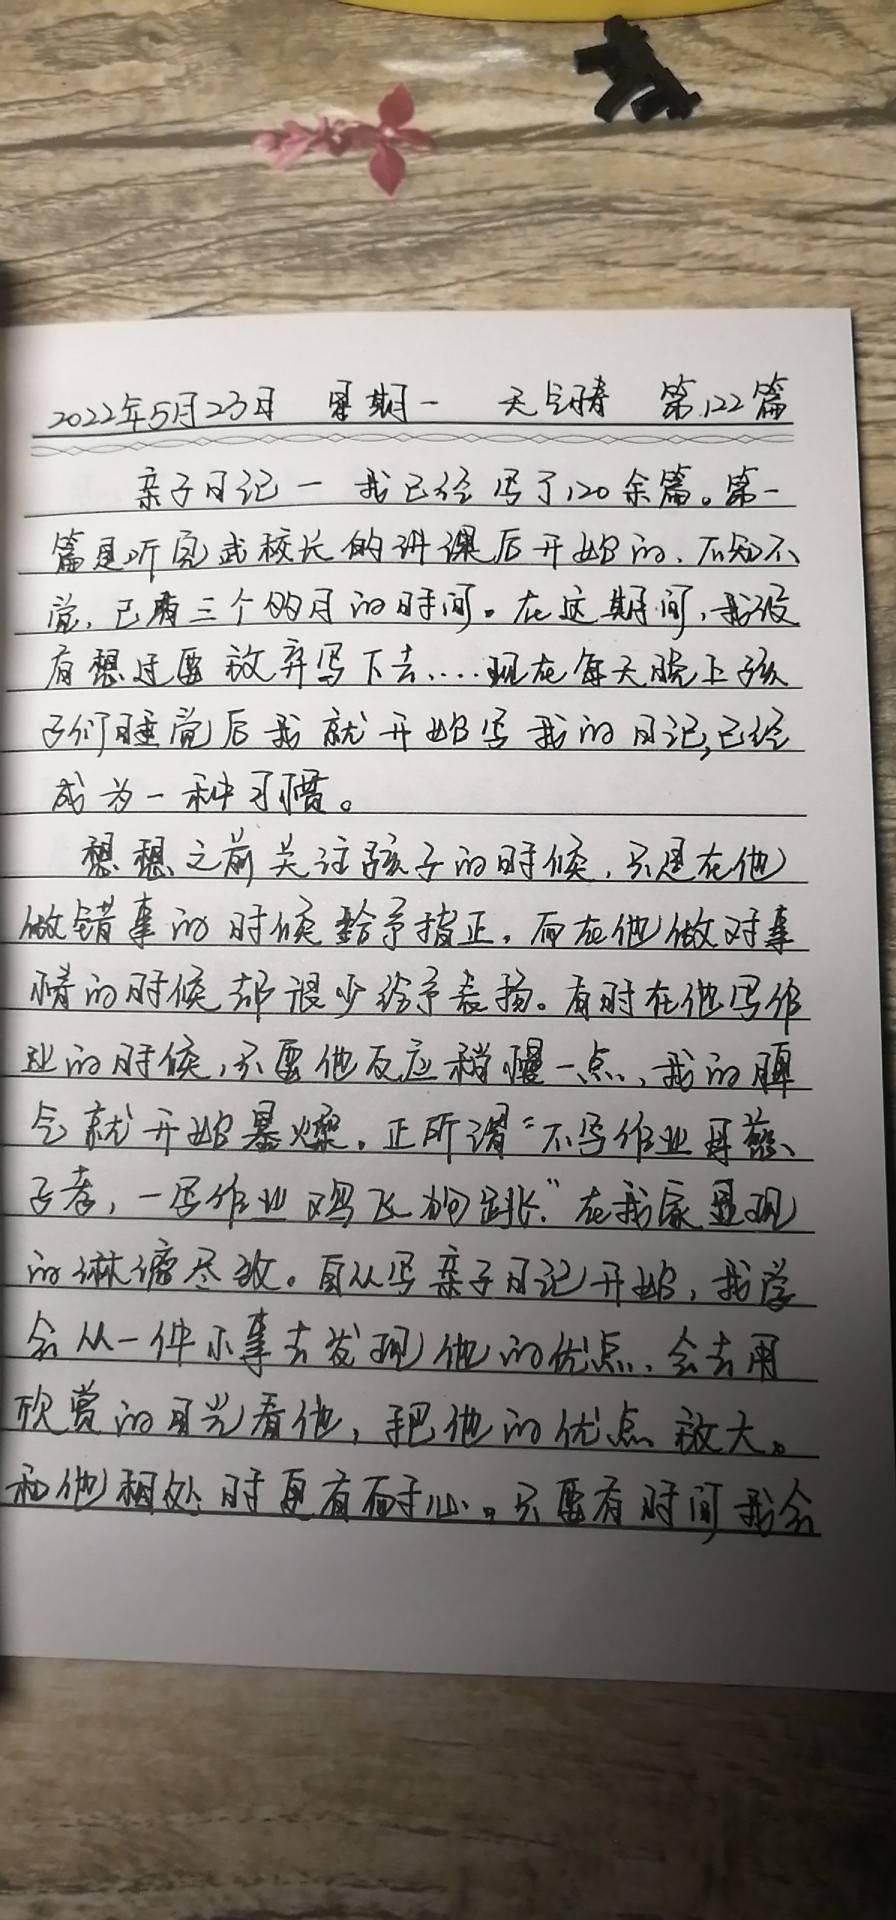 2022年5月23日 星期一 天气晴 第122篇
亲子日记一 我已经写了120余篇。第一
篇是听完武校长的讲课后开始的、不知不
觉，已有三个的月的时间。在这期间，我没
有想过要放弃写下去....现在每天晚上孩
子们睡觉后我就开始写我的日记，已经
成为一种习惯。
想想之前关注孩子的时候，只是在他
做错事的时候给予指正，而在他做对事
情的时候却很少给予表扬。有时在他写作
业的时候，只要他反应稍慢一点，我的脾
气就开始暴燥。正所谓“不写作业母慈、
子孝，一写作业鸡飞狗跳”在我家显现
的淋漓尽致。自从写亲子日记开始，我学
会从一件小事去发现他的优点、会去用
欣赏的目光看他，把他的优点放大。
和他相处时更有耐心。只要有时间我会